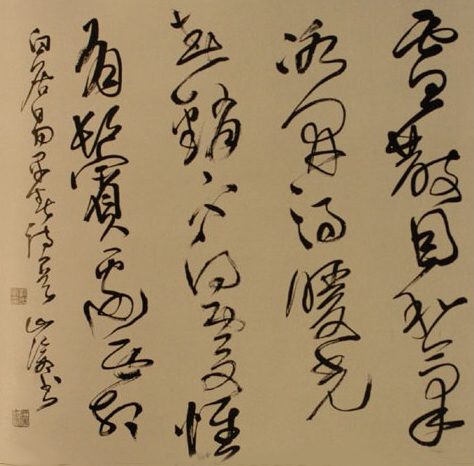 雪散因和氣
冰開得暖光
春銷不得處惟
有鬢邊霜
白居易早春詩一首 山 書